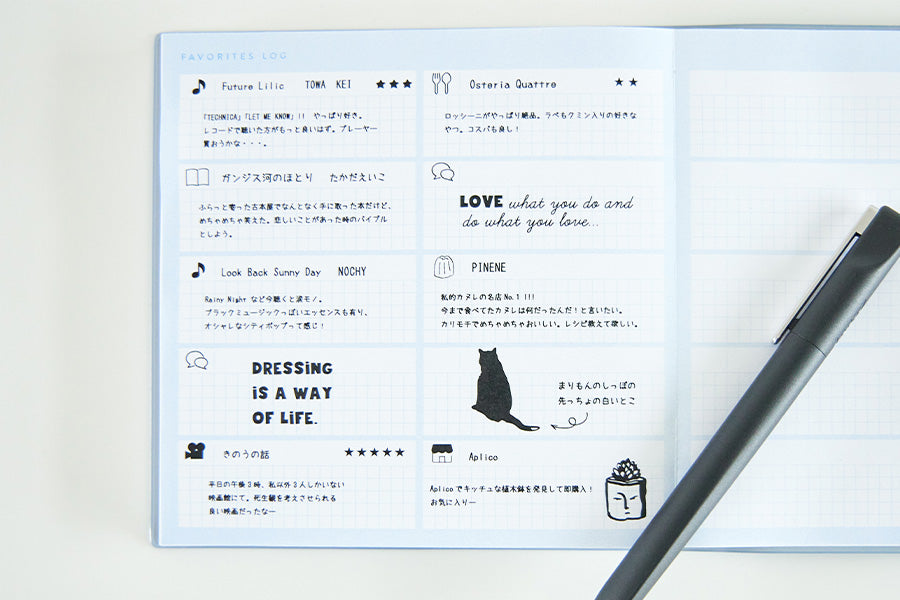 FAVORITES LOG
Future Lilic TOWA KEI ★★★
「TECHNICA」「LET ME KNOW」!! やっぱり好き。
レコードで聴いた方がもっと良いはず。プレーヤー
買おうかな・・・。
ガンジス河のほとり たかだえいこ
ふらっと寄った古本屋でなんとなく手に取った本だけど、
めちゃめちゃ笑えた。悲しいことがあった時のバイブル
としよう。
Look Back Sunny Day NOCHY
Rainy Night など今聴くと涙モノ。
ブラックミュージックっぽいエッセンスも有り、
オシャレなシティポップって感じ!
DRESSiNG
iS A WAY
OF LiFE.
きのうの話 ★★★★★
平日の午後3時、私以外2人しかいない
映画館にて。死生観を考えさせられる
良い映画だったなー
Osteria Quattre ★★
ロッシーニがやっぱり絶品。ラペもクミン入りの好きな
やつ。コスパも良し!
LOVE what you do and
do what you love...
PINENE
私的カヌレの名店 No.1 !!!
今まで食べてたカヌレは何だったんだ!と言いたい。
カリモチでめちゃめちゃおいしい。レシピ教えて欲しい。
まりもんのしっぽの
先っちょの白いとこ
Aplico
Aplico でキッチュな植木鉢を発見して即購入!
お気に入りー